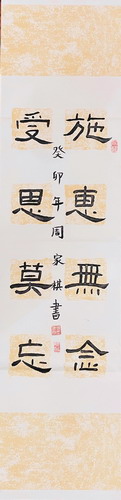 施惠無念
受恩莫忘
癸卯年周家棋書